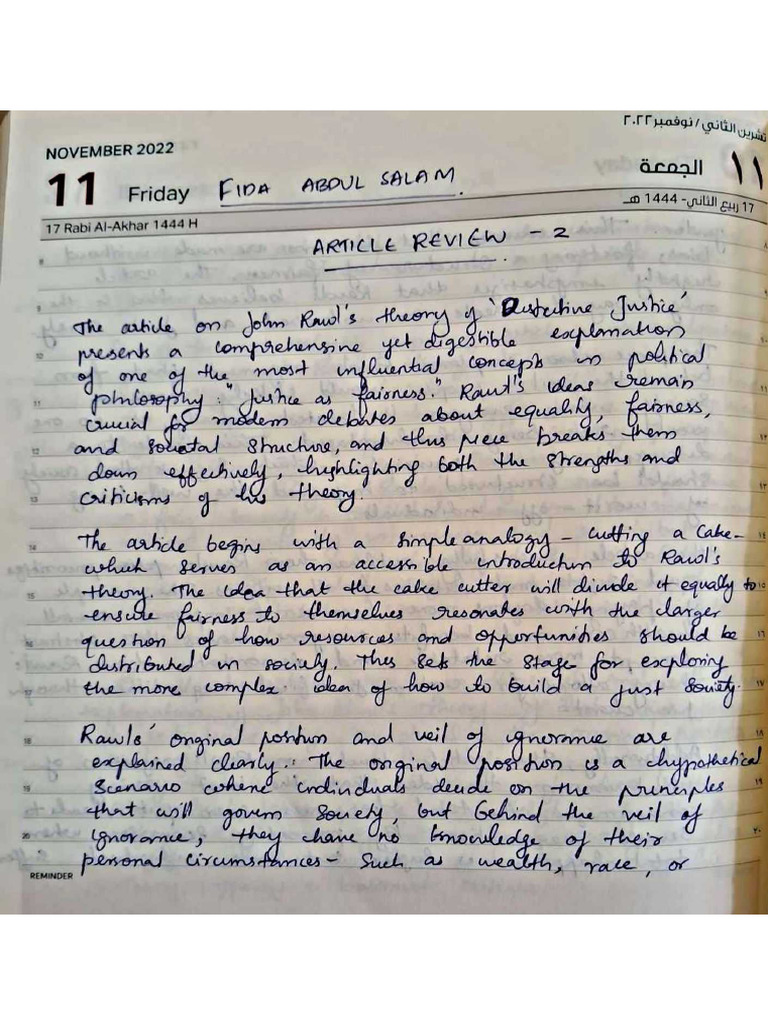 تشرين الثاني/نوفمبر ٢٠٢٢
NOVEMBER 2022
11 Friday FIDA ABDUL SALAM
الجمعة ١١
17 Rabi Al-Akhar 1444 H
17 ربيع الثاني- 1444 هـ
ARTICLE REVIEW - 2
The article on John Rawl's theory of 'Distective Justice'
presents a comprehensive yet digestible explanation
of one of the most influential concepts in political
philosophy: "Justice as fairness." Rawl's ideas remain
crucial for modern debates about equality, fairness,
and societal structure, and this piece breaks them
down effectively, highlighting both the strengths and
criticisms of his theory.
The article begins with a simple analogy - cutting a cake -
which serves as an accessible introduction to Rawl's
theory. The idea that the cake cutter will divide it equally to
ensure fairness to themselves resonates with the larger
question of how resources and opportunities should be
distributed in society. This sets the stage for exploring
the more complex idea of how to build a just society.
Rawls' original position and veil of ignorance are
explained clearly. The original position is a hypothetical
scenario where individuals decide on the principles
that will govern society, but behind the veil of
ignorance, they have no knowledge of their
personal circumstances - such as wealth, race, or
REMINDER